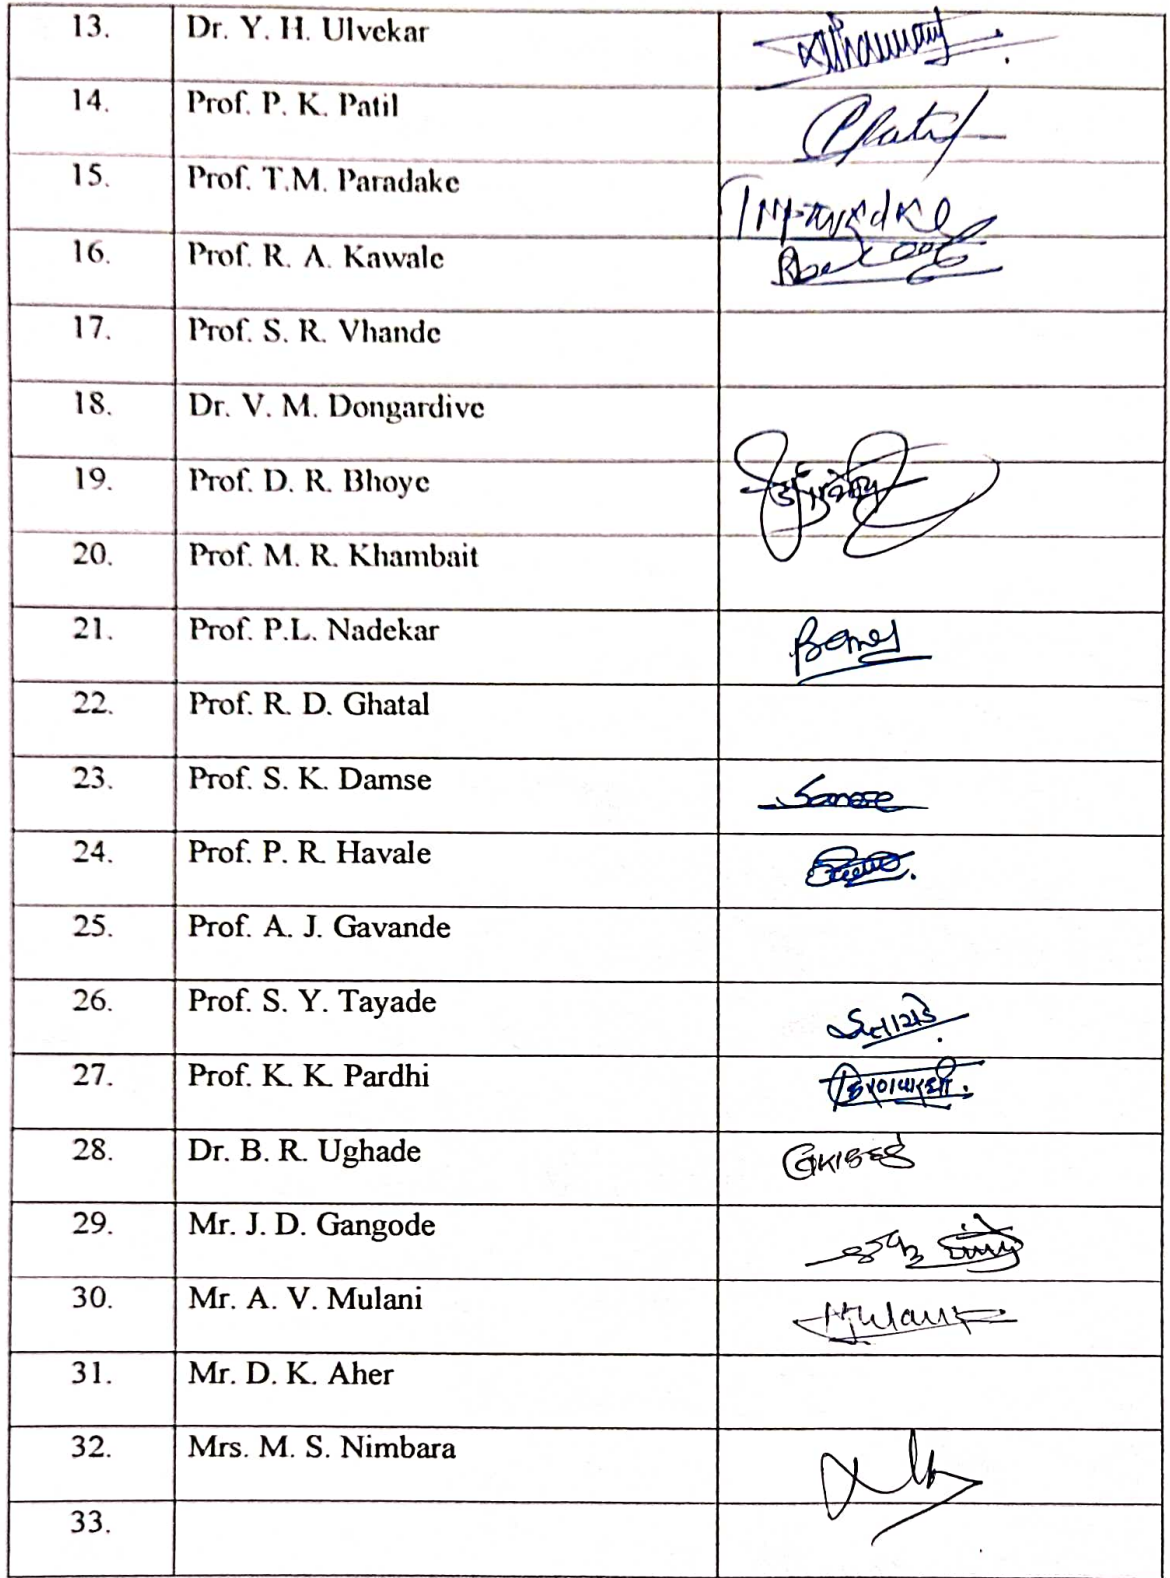 13. Dr. Y. H. Ulvekar
14. Prof. P. K. Patil
15. Prof. T.M. Paradake
16. Prof. R. A. Kawale
17. Prof. S. R. Vhande
18. Dr. V. M. Dongardive
19. Prof. D. R. Bhoye
20. Prof. M. R. Khambait
21. Prof. P.L. Nadekar
22. Prof. R. D. Ghatal
23. Prof. S. K. Damse
24. Prof. P. R. Havale
25. Prof. A. J. Gavande
26. Prof. S. Y. Tayade
27. Prof. K. K. Pardhi
28. Dr. B. R. Ughade
29. Mr. J. D. Gangode
30. Mr. A. V. Mulani
31. Mr. D. K. Aher
32. Mrs. M. S. Nimbara
33.